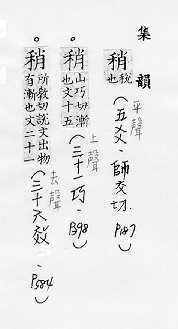 集韻
稍 稅也 平聲(五爻.師交切. P187)
稍 山巧切漸也文十五 上聲(三十一巧. P398)
稍 所教切說文出物有漸也文二十一 去聲(三十六效. P584)